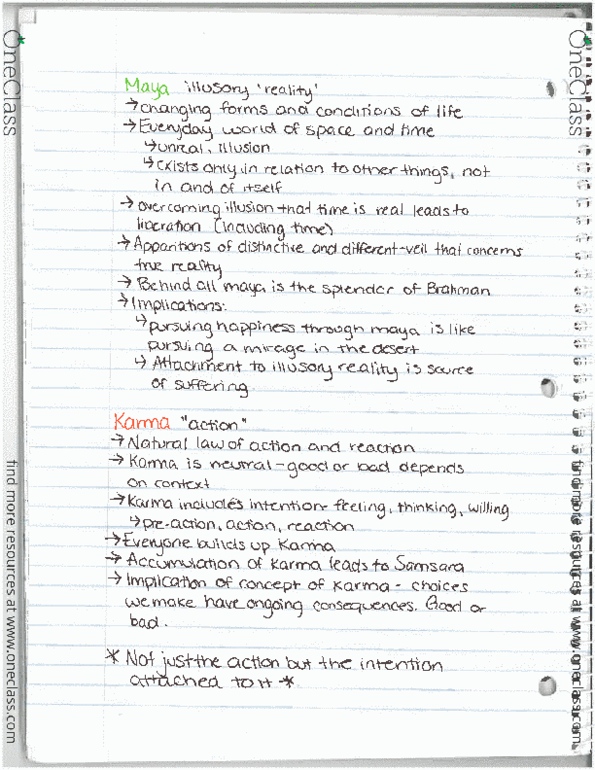 Maya illusory 'reality'
→ changing forms and conditions of life
→ Everyday world of space and time
↳ unreal, illusion
↳ exists only in relation to other things, not
in and of itself
→ overcoming illusion that time is real leads to
liberation (including time)
→ Apparitions of distinctive and different-veil that concerns
true reality
→ Behind all maya is the splender of Brahman
→ Implications:
↳ pursuing happiness through maya is like
pursuing a mirage in the desert
↳ Attachment to illusory reality is source
of suffering.
Karma "action"
→ Natural law of action and reaction
→ Karma is neutral - good or bad depends
on context
→ Karma includes intention- feeling, thinking, willing
↳ pre-action, action, reaction
→ Everyone builds up Karma
→ Accumulation of Karma leads to Samsara
→ Implication of concept of Karma - choices
we make have ongoing consequences. Good or
bad.
* Not just the action but the intention
attached to it *
OneClass
find more resources at www.oneclass.com
OneClass
find more resources at www.oneclass.com